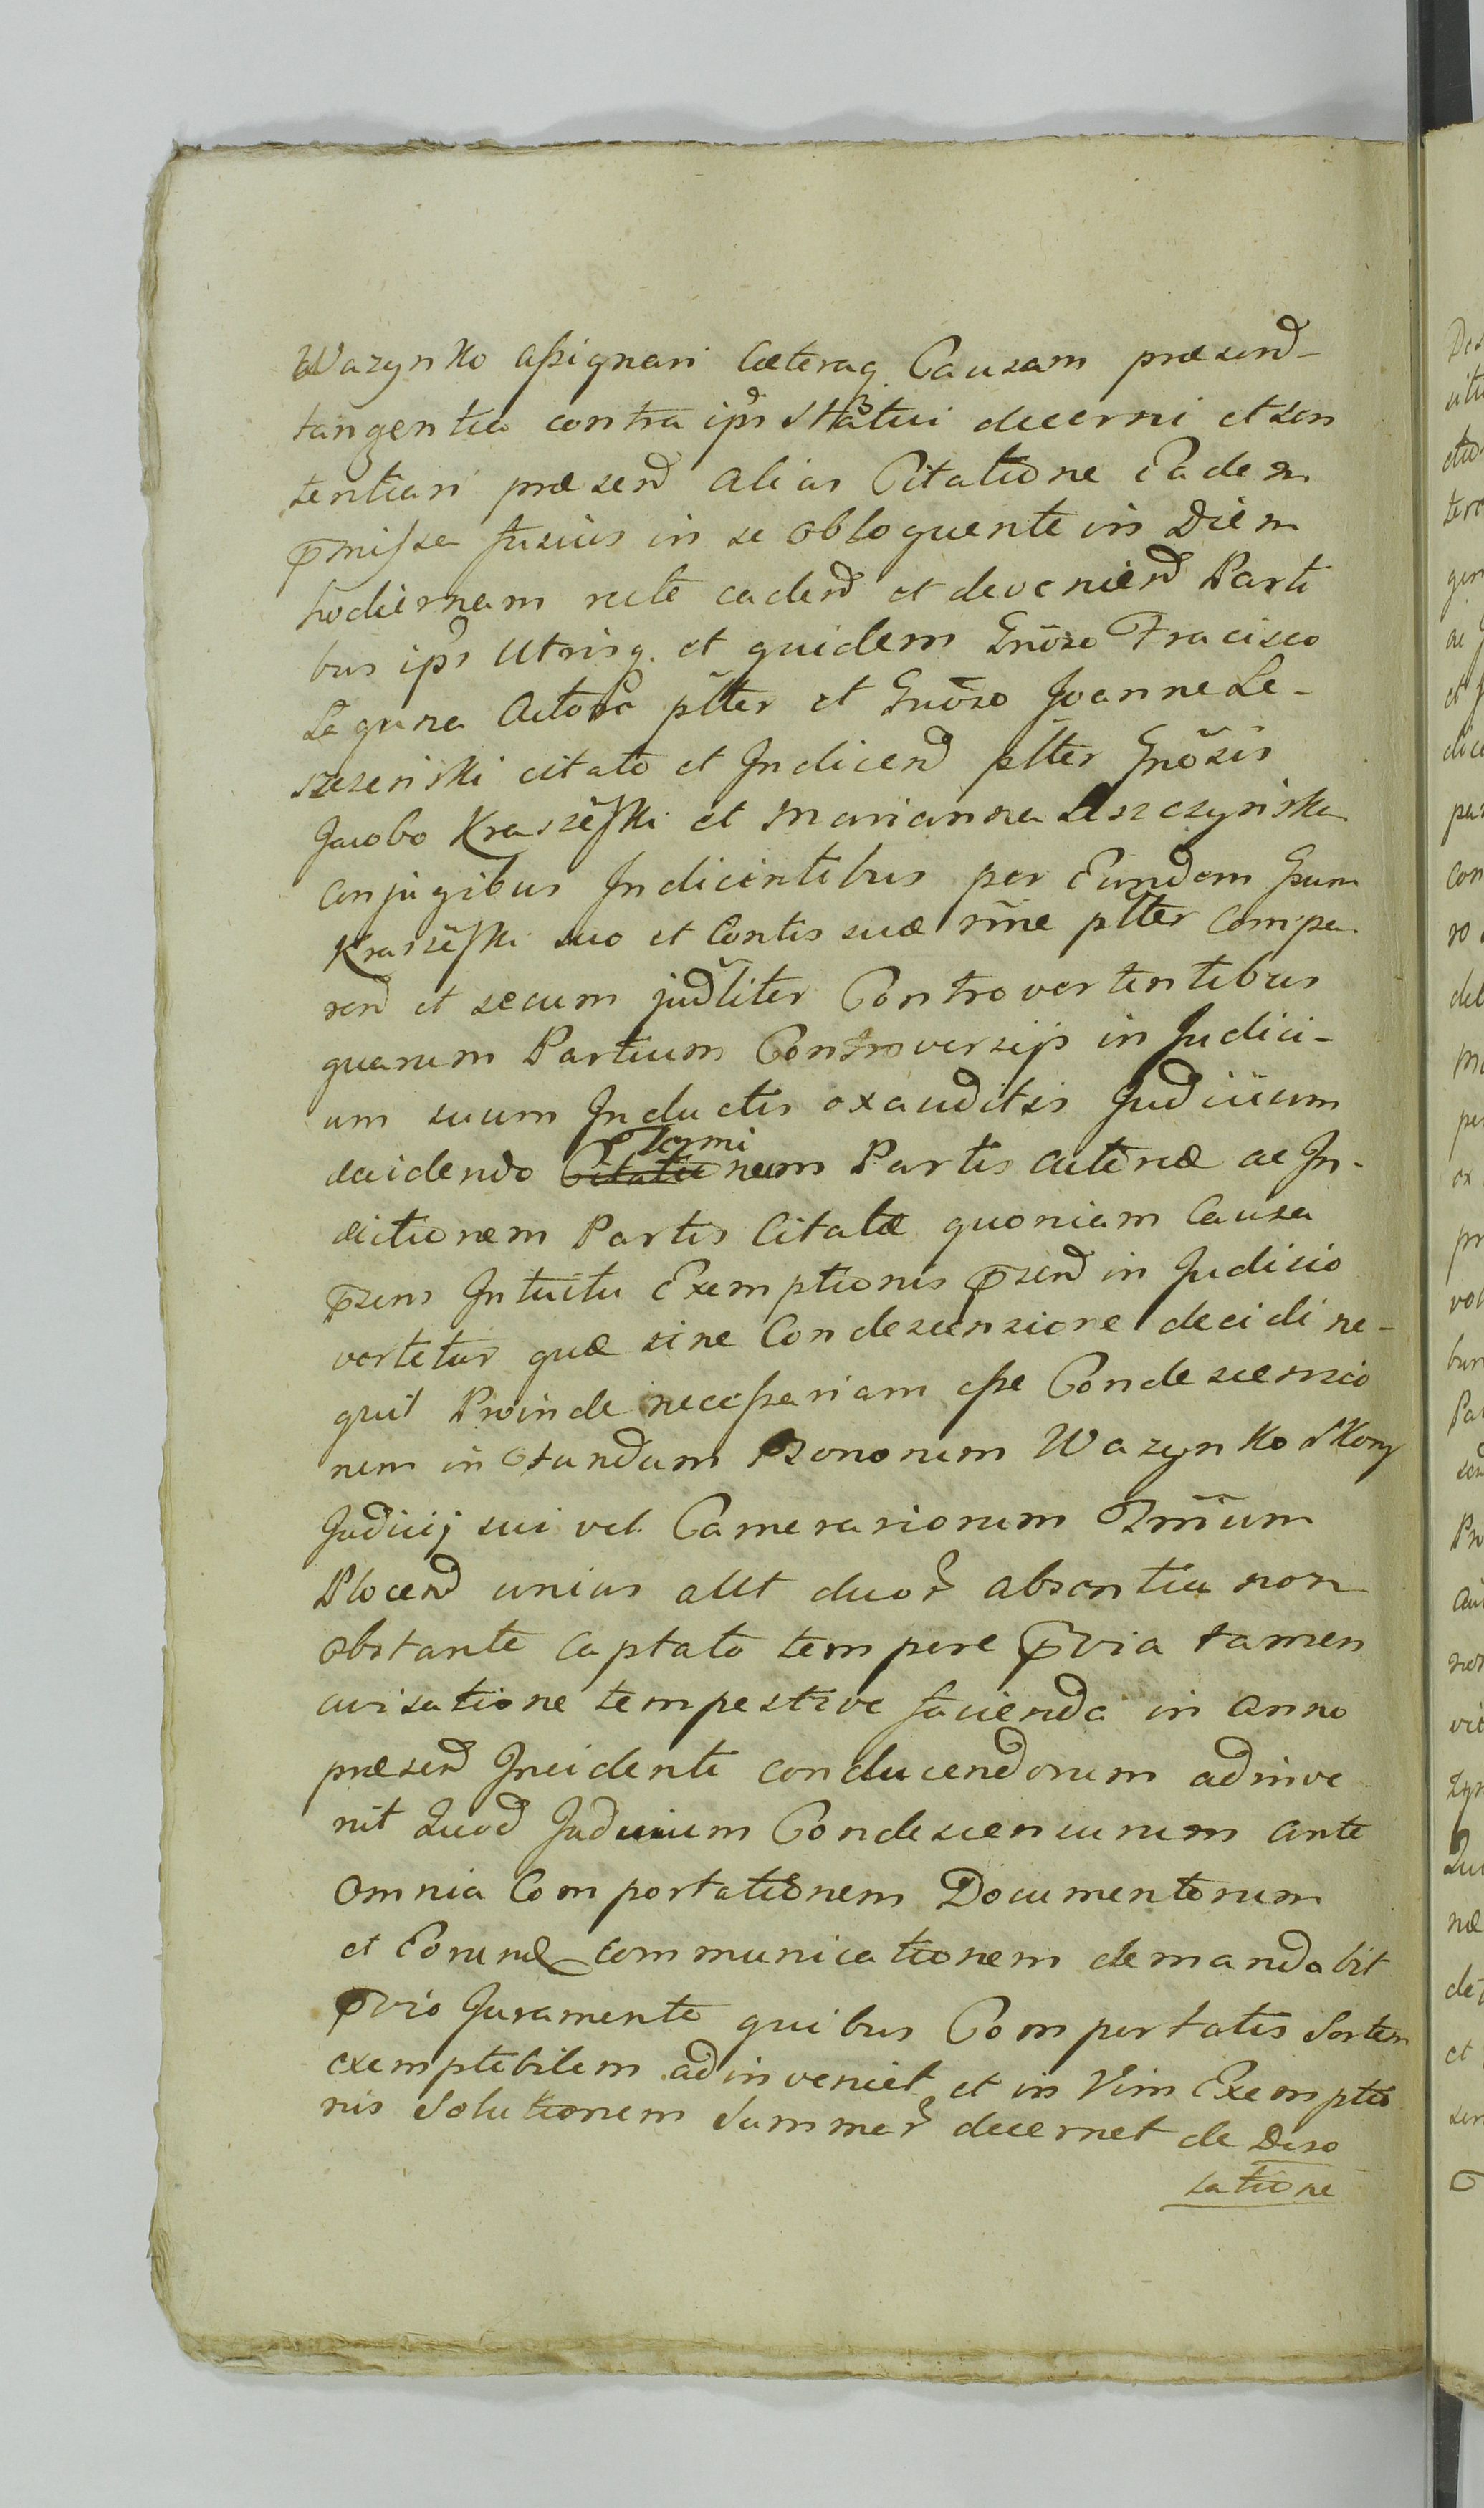 Wazynko assignari caeteraq. Causam praesend
tangentia contra ipsos statui decerni et sen
tentiari praesend alias Citatione Eadem
pmissa fusius in se obloquente in Diem
hodiernam recte cadend et deveniend Parti
bus ipsis utrisq. et quidem Gnoso Fracisco
Łaguna Actore plter et Gnoso Joanne Le-
szczenski citato et Indicend plter Gnosis
Jacobo Kraszeski et Marianna Leszczynska
Conjugibus Indicentibus per Eundem Gsum
Kraszeski suo et Contis suae nine plter compa
rend et secum judliter Controvertentibus
quarum Partium Controversijs in Judici-
um suum Inductis exauditis Judicium
decidendo Citatio Termi num Partis actoreae ac In-
dictionem Partis Citatae quoniam Causa
psens Intuitu Exemptionis psend in Judicio
vertetur quae sine Condescensione decidi ne-
quit Proinde necessariam esse Condescensio
nem in Fundum Bonorum Wazynko Skony
Judicij sui vel Camerariorum Trnium
Plocend unius allt duor absentia non
obstante captato tempore pvia tamen
avisatione tempestive facienda in anno
praesend Incidenti conducendorum adinve
nit Quod Judicium Condescensurum ante
omnia Comportationem Documentorum
et Eorund communicationem demandabit
pvio Juramento quibus Comportatis Sortem
exemptibilem adinveniet et in Vim Exemptio
nis Solutionem Summar decernet de Deso
latione